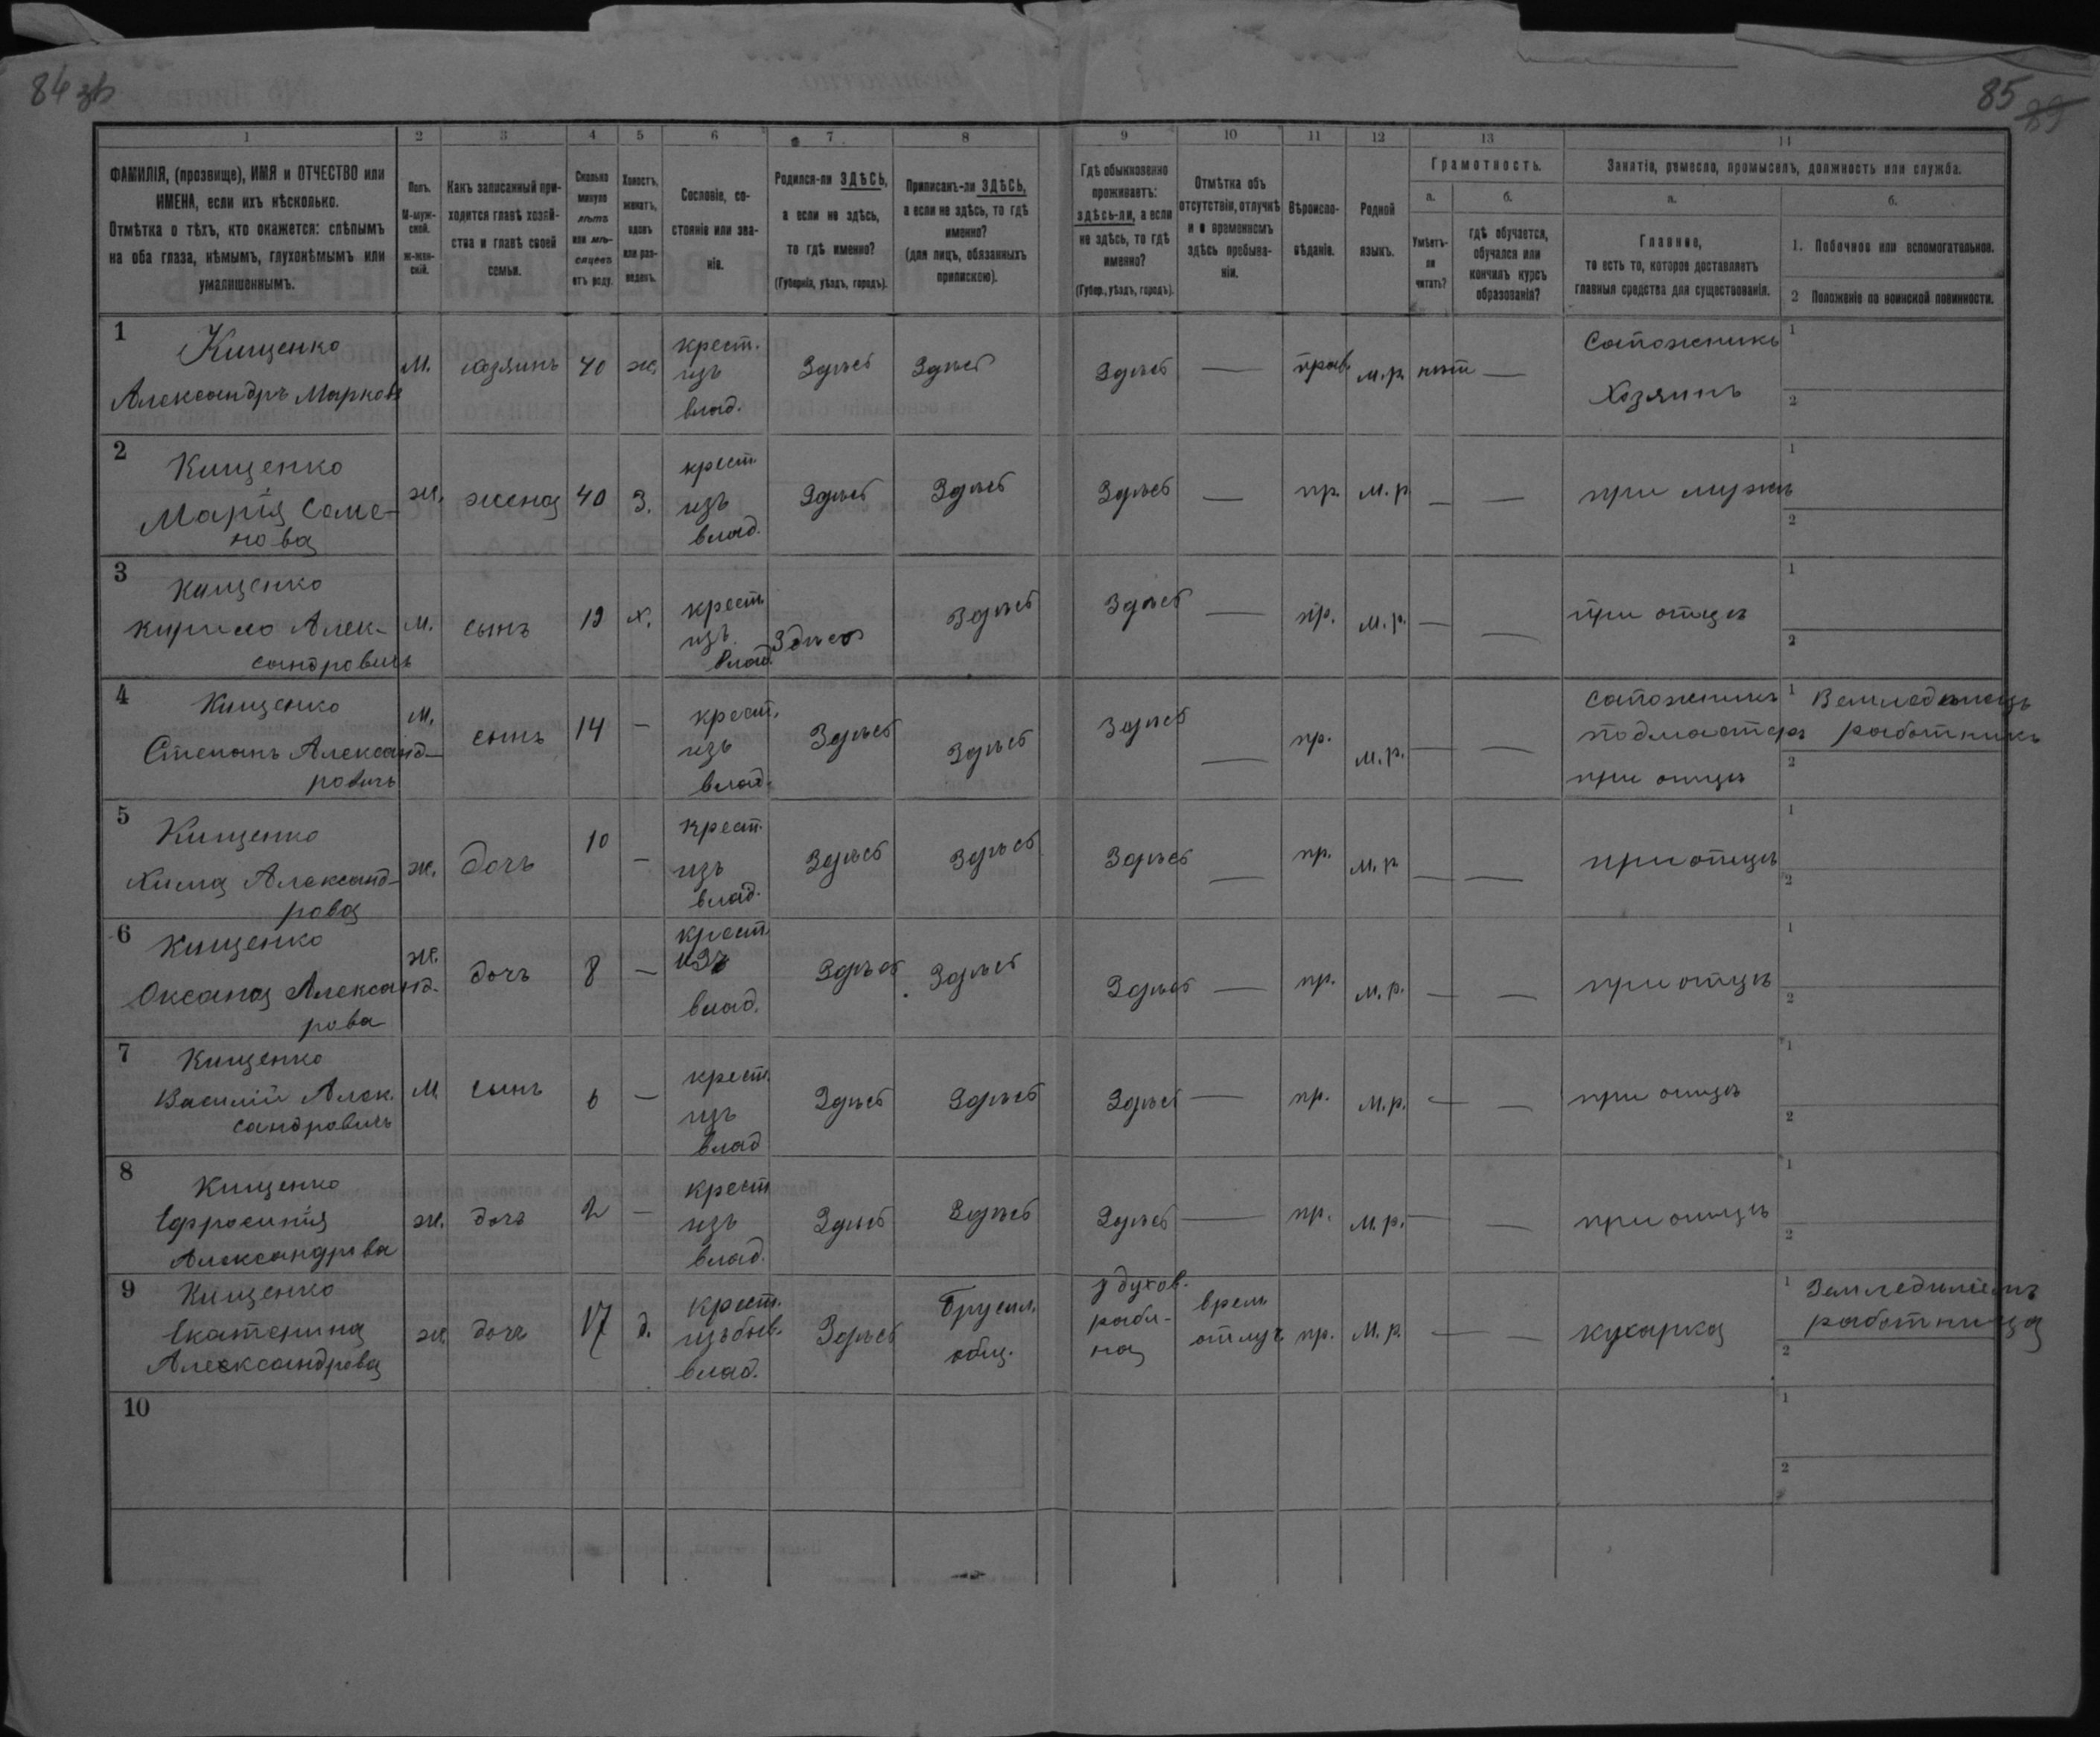 84 зв
85
89
1 2 3 4 5 6 7 8 9 10 11 12 13 14
ФАМИЛІЯ, (прозвище), ИМЯ и ОТЧЕСТВО или
ИМЕНА, если ихъ нѣсколько.
Отмѣтка о тѣхъ, кто окажется: слѣпымъ
на оба глаза, нѣмымъ, глухонѣмымъ или
умалишеннымъ.
Полъ.
М-муж-
ской.
ж-жен-
скій.
Какъ записанный при-
ходится главѣ хозяй-
ства и главѣ своей
семьи.
Сколько
минуло
лѣтъ
или мѣ-
сяцевъ
отъ роду.
Холостъ,
женатъ,
вдовъ
или раз-
веденъ.
Сословіе, со-
стояніе или зва-
ніе.
Родился-ли ЗДѢСЬ,
а если не здѣсь,
то гдѣ именно?
(Губернія, уѣздъ, городъ).
Приписанъ-ли ЗДѢСЬ,
а если не здѣсь, то гдѣ
именно?
(для лицъ, обязанныхъ
припискою).
Гдѣ обыкновенно
проживаетъ:
здѣсь-ли, а если
не здѣсь, то гдѣ
именно?
(Губер., уѣздъ, городъ).
Отмѣтка объ
отсутствіи, отлучкѣ
и о временномъ
здѣсь пребыва-
ніи.
Вѣроиспо-
вѣданіе.
Родной
языкъ.
Грамотность.
а.
Умѣетъ-
ли
читать?
б.
гдѣ обучается,
обучался или
кончилъ курсъ
образованія?
Занятіе, ремесло, промыселъ, должность или служба.
а.
Главное,
то есть то, которое доставляетъ
главныя средства для существованія.
б.
1. Побочное или вспомогательное.
2 Положеніе по воинской повинности.
1
Кищенко
Александръ Марковъ
М. хозяинъ 40 ж.
крест.
изъ
влад.
Здѣсь Здѣсь Здѣсь — прав. м.р. нѣтъ —
Сапожникъ
Хозяинъ
1
2
2
Кищенко
Марія Семе-
нова
ж. жена 40 З.
крест.
изъ
влад.
Здѣсь Здѣсь Здѣсь — пр. м.р — —
при мужѣ
1
2
3
Кищенко
Кирило Алек-
сандровичъ
М. сынъ 19 х.
крест
изъ
влад.
Здѣсь Здѣсь Здѣсь — пр. м.р. — —
при отцѣ
1
2
4
Кищенко
Степанъ Александ-
ровичъ
М. сынъ 14 —
крест.
изъ
влад.
Здѣсь Здѣсь Здѣсь — пр. м.р. — —
сапожникъ
подмастеръ
при отцѣ
1
работникъ
2
5
Кищенко
Химa Александ-
рова
ж. дочь 10 —
крест.
изъ
влад.
Здѣсь Здѣсь Здѣсь — пр. м.р — —
при отцѣ
1
2
6
Кищенко
Оксана Александ-
рова
ж. дочь 8 —
крест.
изъ
влад.
Здѣсь Здѣсь Здѣсь — пр. м.р. — —
при отцѣ
1
2
7
Кищенко
Василій Алек.
сандровичъ
М сынъ 6 —
крест.
изъ
влад
Здѣсь Здѣсь Здѣсь — пр. м.р. — —
при отцѣ
1
2
8
Кищенко
Ефросинія
Александрова
ж. дочь 2 —
крест
изъ
влад.
Здѣсь Здѣсь Здѣсь — пр. м.р. — —
при отцѣ
1
2
9
Кищенко
Екатерина
Александрова
ж. дочь 17 д.
крест.
изъ быв.
влад.
Здѣсь
Брусил.
общ.
врем.
отлуч
пр. м.р. — —
кухарка
1
работница
2
10
1
2